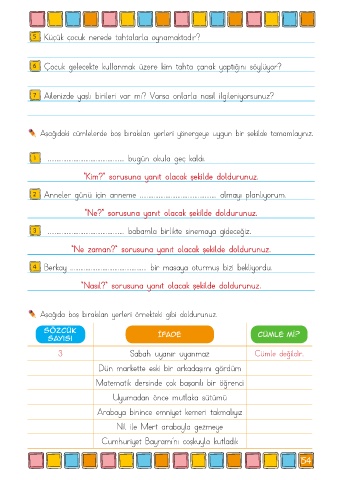 5 Küçük çocuk nerede tahtalarla oynamaktadır?
6 Çocuk gelecekte kullanmak üzere kim tahta çanak yaptığını söylüyor?
7 Ailenizde yaşlı birileri var mı? Varsa onlarla nasıl ilgileniyorsunuz?
Aşağıdaki cümlelerde boş bırakılan yerleri yönergeye uygun bir şekilde tamamlayınız.
1 ........................................ bugün okula geç kaldı.
"Kim?" sorusuna yanıt olacak şekilde doldurunuz.
2 Anneler günü için anneme ........................................ almayı planlıyorum.
"Ne?" sorusuna yanıt olacak şekilde doldurunuz.
3 ........................................ babamla birlikte sinemaya gideceğiz.
"Ne zaman?" sorusuna yanıt olacak şekilde doldurunuz.
4 Berkay ........................................ bir masaya oturmuş bizi bekliyordu.
"Nasıl?" sorusuna yanıt olacak şekilde doldurunuz.
Aşağıda boş bırakılan yerleri örnekteki gibi doldurunuz.
SÖZCÜK SAYISI İFADE CÜMLE Mİ?
3 Sabah uyanır uyanmaz Cümle değildir.
Dün markette eski bir arkadaşını gördüm
Matematik dersinde çok başarılı bir öğrenci
Uyumadan önce mutlaka sütümü
Arabaya binince emniyet kemeri takmalıyız
Nil ile Mert arabayla gezmeye
Cumhuriyet Bayramı'nı coşkuyla kutladık
54